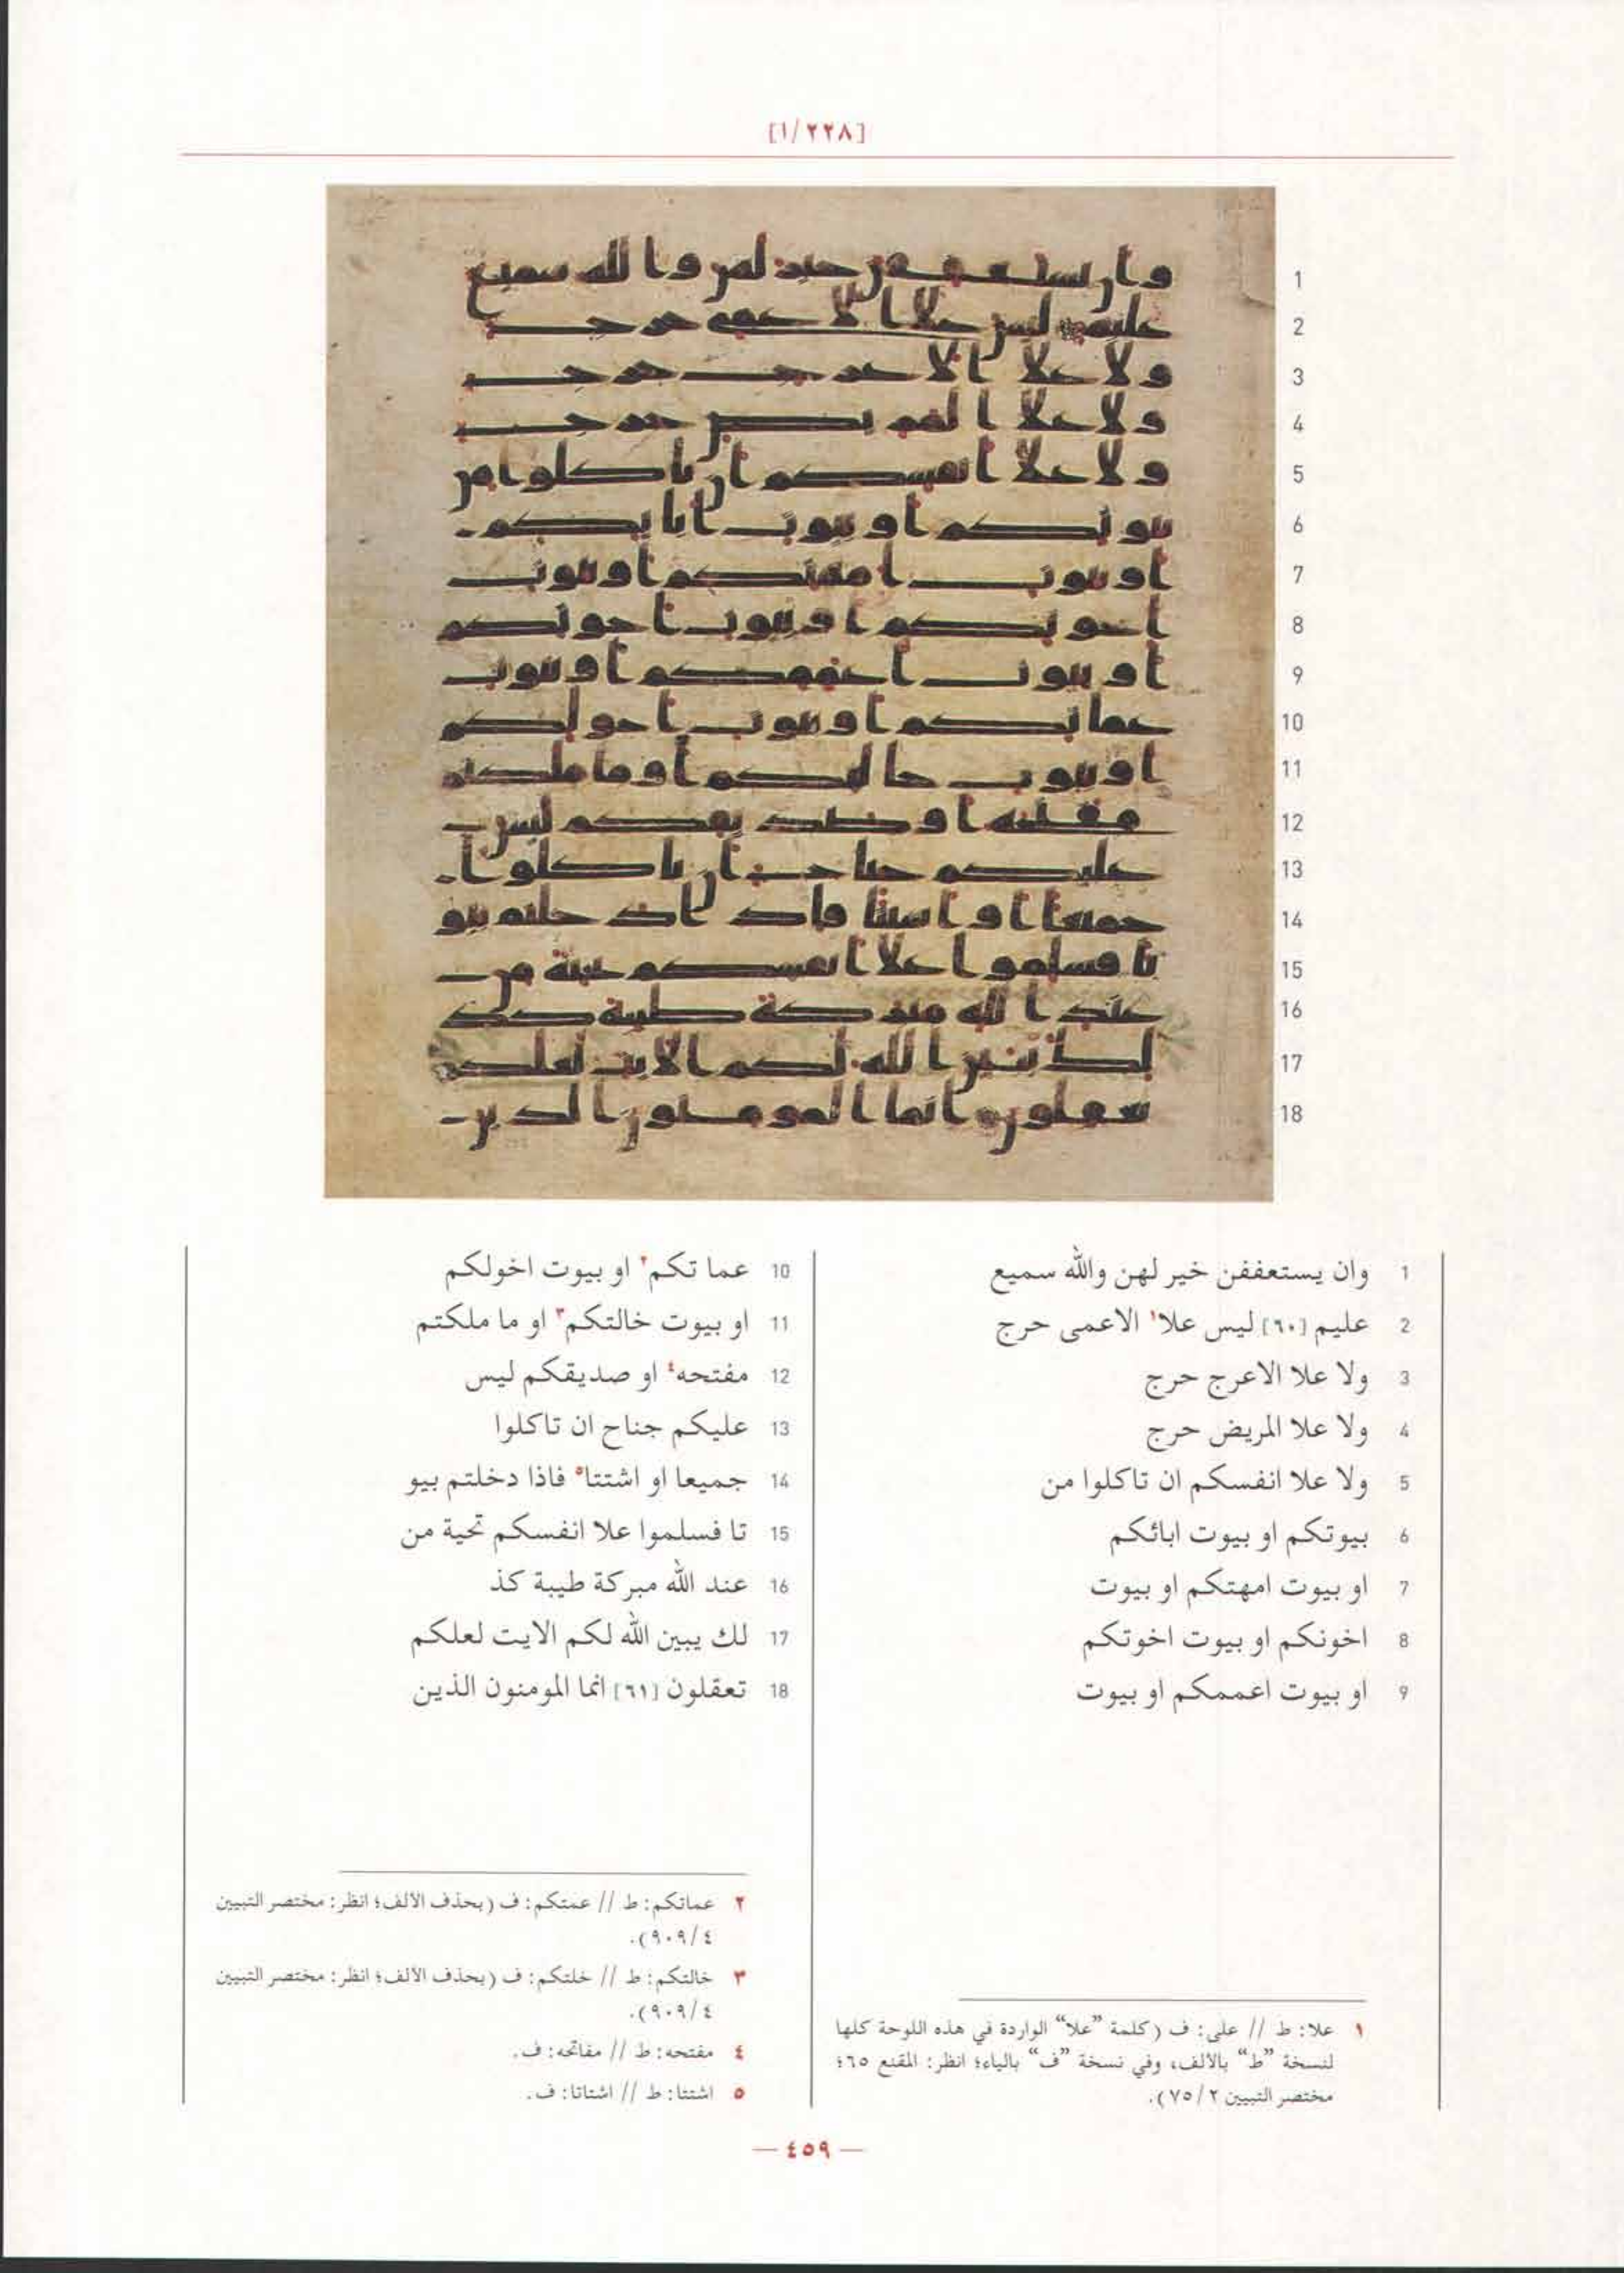 [١/٢٢٨]
1 وان يستعففن خير لهن والله سميع
2 عليم [٦٠] ليس علا١ الاعمى حرج
3 ولا علا الاعرج حرج
4 ولا علا المريض حرج
5 ولا علا انفسكم ان تاكلوا من
6 بيوتكم او بيوت ابائكم
7 او بيوت امهتكم او بيوت
8 اخونكم او بيوت اخوتكم
9 او بيوت اعممكم او بيوت
10 عما تكم٢ او بيوت اخولكم
11 او بيوت خالتكم٣ او ما ملكتم
12 مفتحه٤ او صديقكم ليس
13 عليكم جناح ان تاكلوا
14 جميعا او اشتتا٥ فاذا دخلتم بيو
15 تا فسلموا علا انفسكم تحية من
16 عند الله مبركة طيبة كذ
17 لك يبين الله لكم الايت لعلكم
18 تعقلون [٦١] انما المومنون الذين
١ علا: ط // على: ف (كلمة ”علا“ الواردة في هذه اللوحة كلها
لنسخة ”ط“ بالألف، وفي نسخة ”ف“ بالياء؛ انظر: المقنع ٦٥؛
مختصر التبيين ٧٥/٢).
٢ عماتكم: ط // عمتكم: ف (بحذف الألف؛ انظر: مختصر التبيين
٩٠٩/٤).
٣ خالتكم: ط // خلتكم: ف (بحذف الألف؛ انظر: مختصر التبيين
٩٠٩/٤).
٤ مفتحه: ط // مفاتحه: ف.
٥ اشتتا: ط // اشتاتا: ف.
— ٤٥٩ —